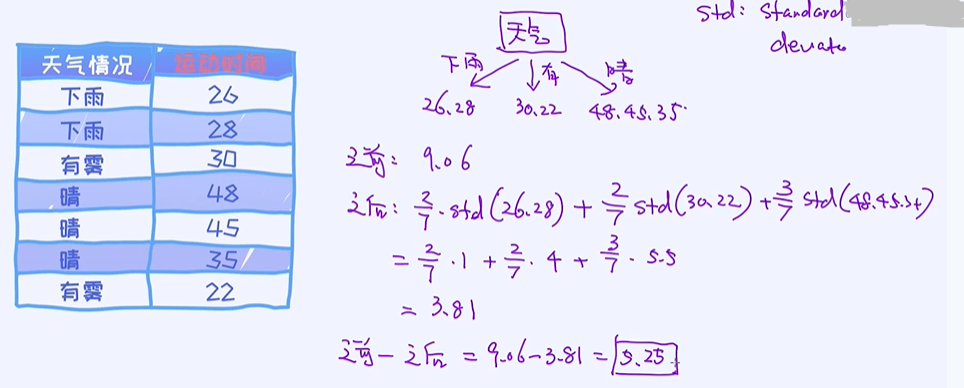 std: standard
deviate
天气情况 运动时间
下雨 26
下雨 28
有雾 30
晴 48
晴 45
晴 35
有雾 22
天气
下雨 有 晴
26.28 30.22 48.45.35
之前: 9.06
之后: 2/7 · std(26.28) + 2/7 std(30.22) + 3/7 std(48.45.35)
= 2/7 · 1 + 2/7 · 4 + 3/7 · 5.5
= 3.81
之前 - 之后 = 9.06 - 3.81 = 5.25